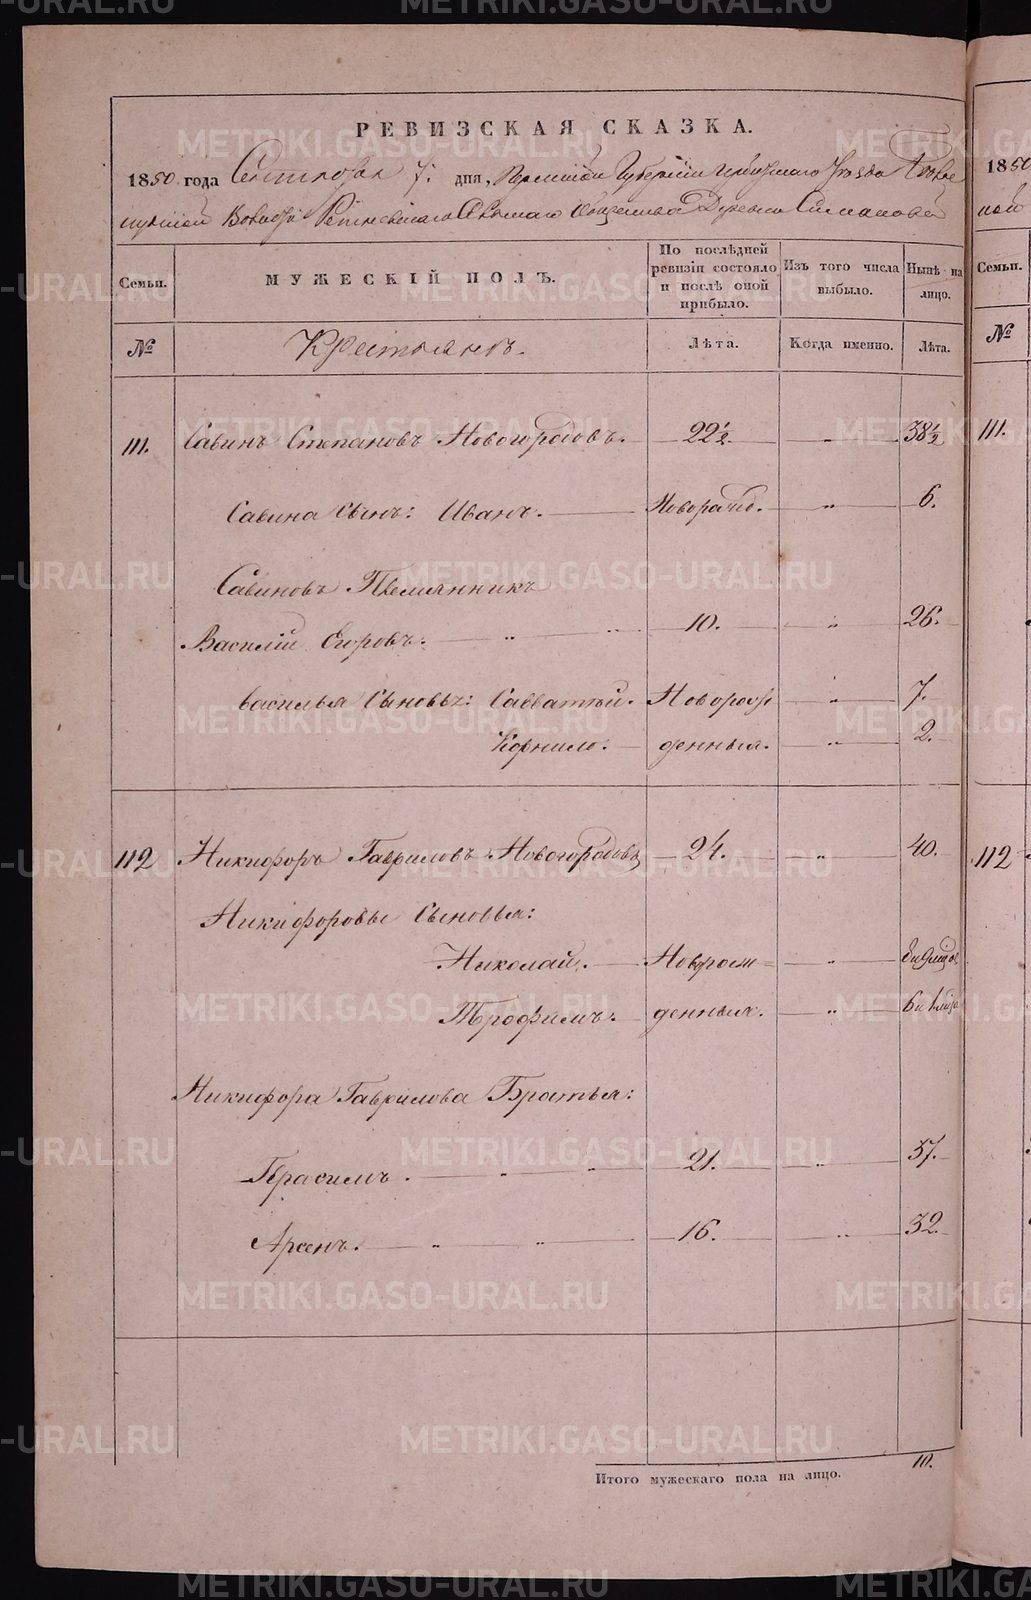 РЕВИЗСКАЯ СКАЗКА.
1850 года Сентября 7. дня, Пермской Губернии Уезда
Волости Сельскаго Общества Деревни Симановой
Семьи.
МУЖЕСКІЙ ПОЛЪ.
По послѣдней ревизіи состояло и послѣ оной прибыло.
Изъ того числа выбыло.
Нынѣ на лицо.
№
Крестьянъ.
Лѣта.
Когда именно.
Лѣта.
111. Савинъ Степановъ Новогородовъ. 22½. „ 38½
Савина Сынъ: Иванъ. Новорожд. „ 6.
Савиновъ Племянникъ
Василій Егоровъ. „ „ 10. „ 26.
Василья Сыновья: Савватѣй. Новорож „ 7.
Корнило. денныя. „ 2.
112 Никифоръ Гавриловъ Новогородовъ 24. „ 40.
Никифоровы Сыновья:
Николай. Новрож= „ 9
Трофимъ. денныя. „ 1
Никифора Гаврилова Братья:
Герасимъ. „ „ 21. „ 37.
Арсенъ. „ „ 16. „ 32.
Итого мужескаго пола на лицо. 10.
1850
ной
Семьи.
№
111.
112
METRIKI.GASO-URAL.RU